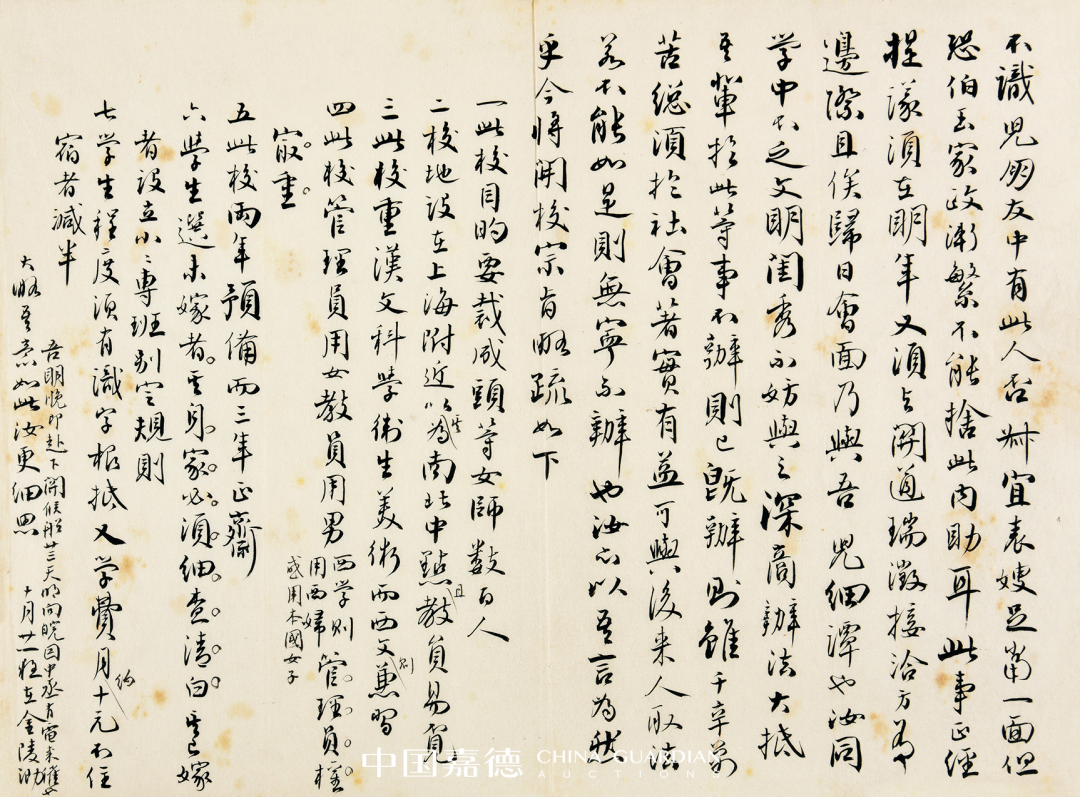 不識兒朋友中有此人否舜宜表嫂足當一面但
恐伯玉家政漸繁不能捨此內助耳此事正經
提議須在明年又須與關道瑞澂接洽方有
邊際且俟歸日會面乃與吾兒細譚也汝同
學中不乏文明閨秀不妨與之深商辦法大抵
吾輩於此等事不辦則已旣辦則雖千辛萬
苦總須於社會著實有益可與後來人取法
若不能如是則無寧不辦也汝亦以吾言為然
乎今將開校宗旨略疏如下
一此校目的要裁成頭等女師數百人
二校地設在上海附近以其為南北中點且教員易覓
三此校重漢文科學衛生美術而西文則兼習
四此校管理員用女教員用男西學則用西婦或用本國女子管理員權
最重
五此校兩年預備而三年正齋
六學生選未嫁者其身家必須細查清白其已嫁
者設立小小專班別定規則
七學生程度須有識字根抵又學費月約十元不住
宿者減半
大略吾意如此汝更細思
吾明晚即赴下關候船廿三天明向皖因中丞有電來催也
十月廿一狂在金陵泐
中国嘉德 CHINA GUARDIAN
AUCTIONS